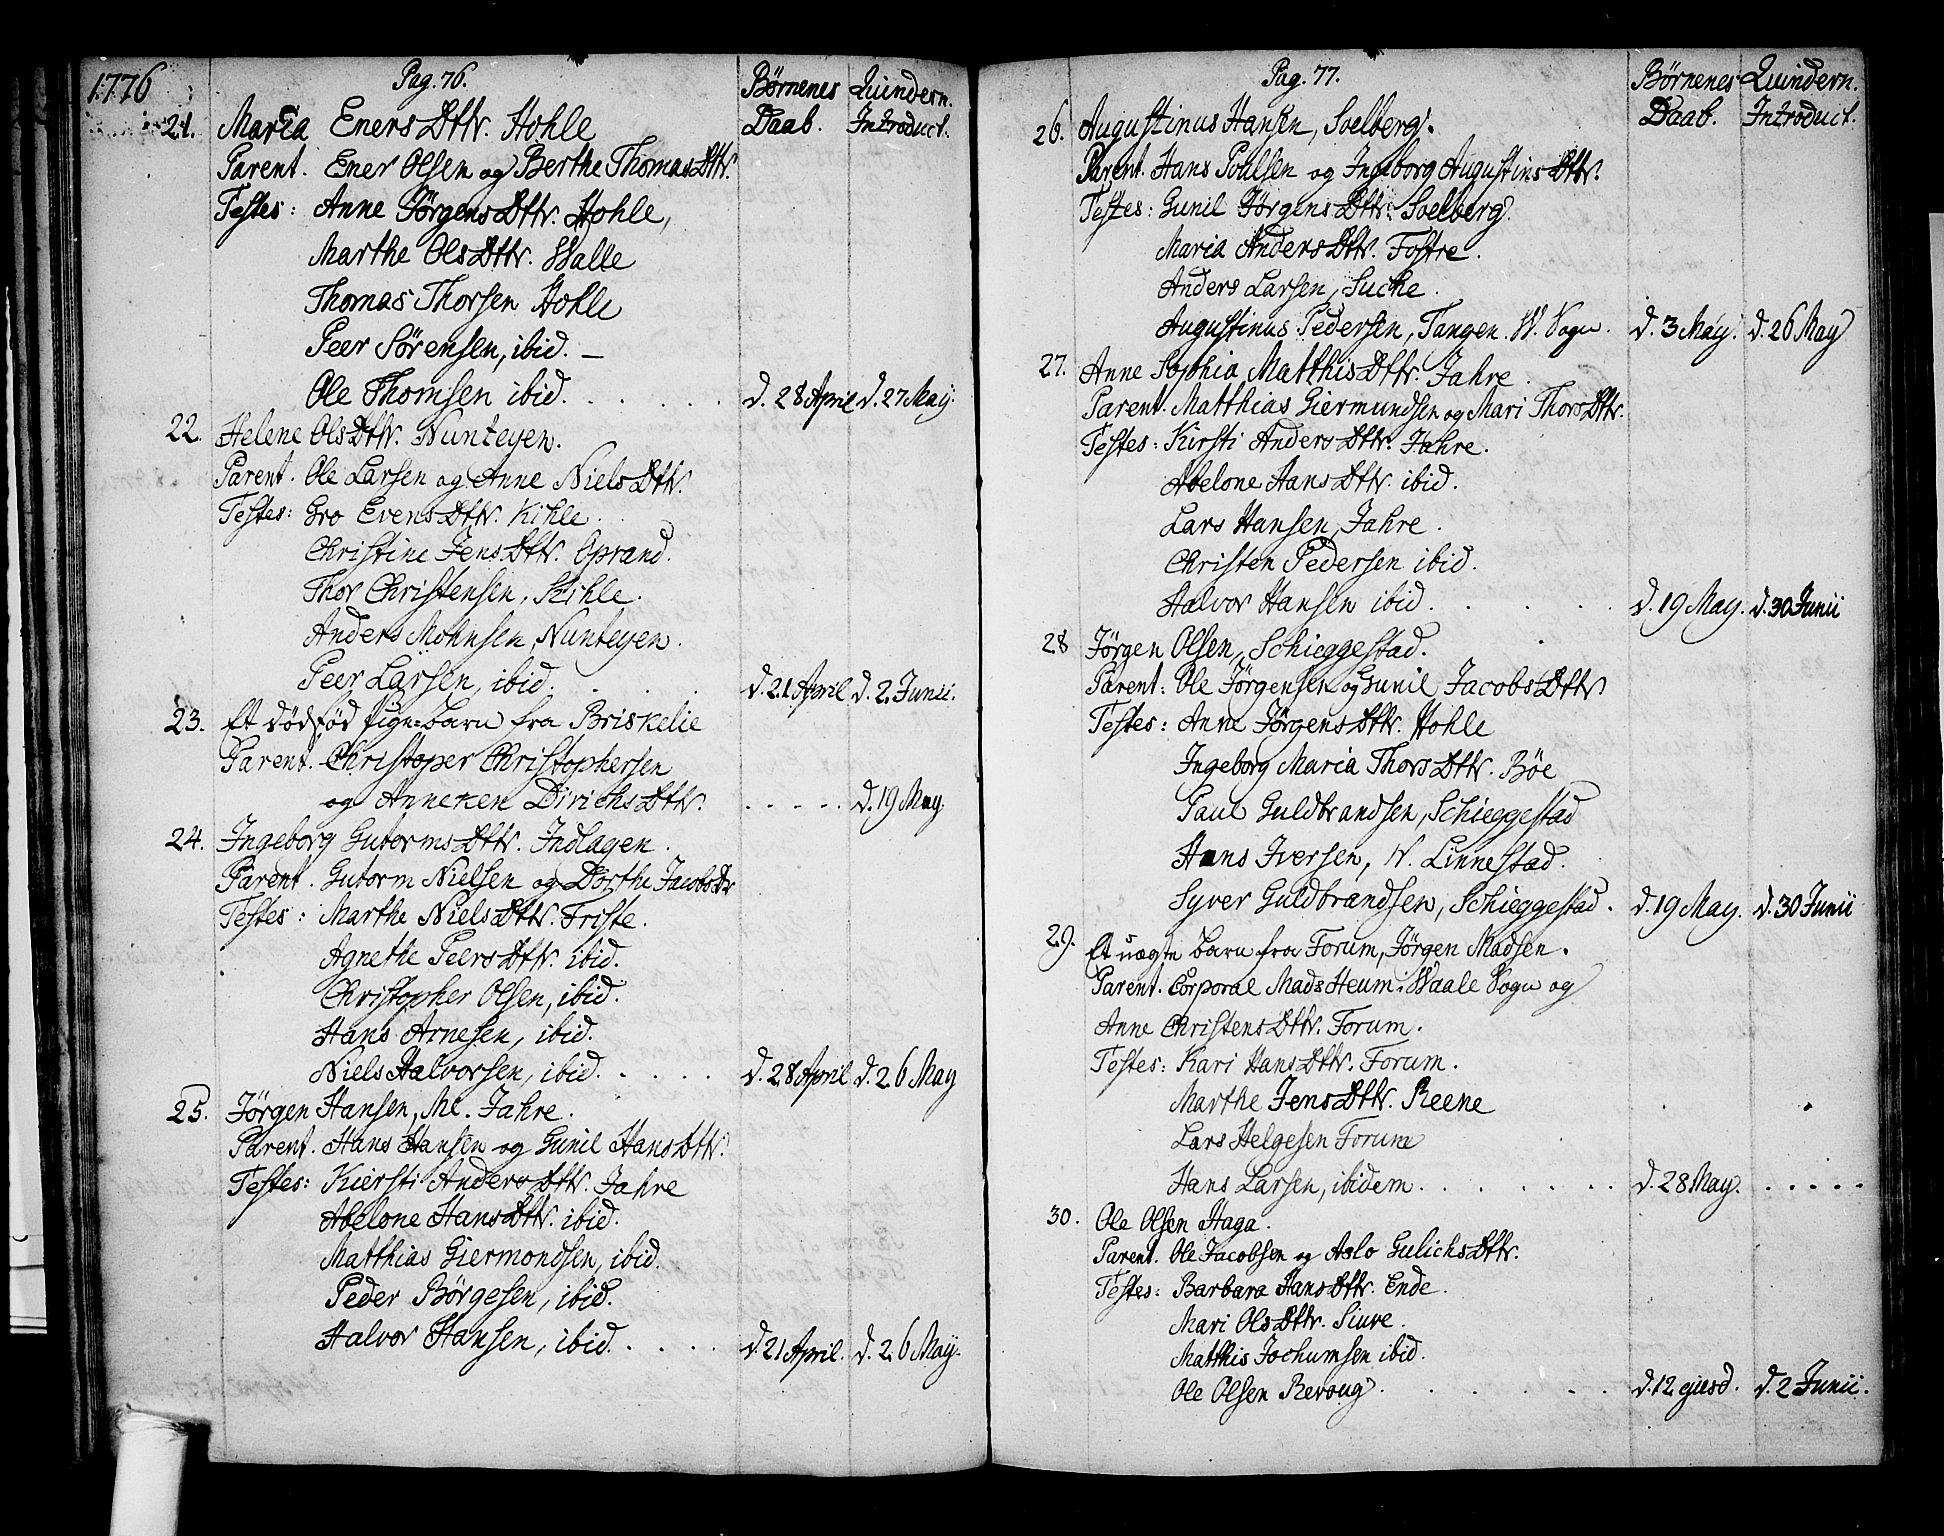 1776
Pag. 76.
Börnenes Daab.
Quindern. Introduct.
21. Maria Eners Dttr. Hohle
Parent. Ener Olsen og Berthe Thomas Dttr.
Testes: Anne Jörgens Dttr. Hohle,
Marthe Ols Dttr. Walle
Thomas Thorsen Hohle
Peer Sörensen, ibid. –
Ole Thomsen ibid. . . . . . d. 28 April d. 27 May.
22. Helene Ols Dttr. Nunteyen.
Parent. Ole Larsen og Anne Niels Dttr.
Testes: Gro Evens Dttr. Kihle.
Christine Jens Dttr. Oprand.
Thor Christensen, Kihle.
Anders Mohnsen, Nunteyen.
Peer Larsen, ibid. . . . . d. 21 April d. 2. Junii.
23. Et dödföd pige-barn fra Briskelie
Parent. Christoper Christophersen
og Anneken Dirichs Dttr. . . . . . d. 19 May.
24. Ingeborg Gutorms Dttr. Indlagen.
Parent. Gutorm Nielsen og Dorthe Jacobs Dr
Testes: Marthe Niels Dttr. Friste.
Agnethe Peers Dttr. ibid.
Christopher Olsen, ibid.
Hans Arnesen, ibid.
Niels Halvorsen, ibid. . . . . d. 28 April d. 26 May
25. Jörgen Hansen, Ml. Jahre.
Parent. Hans Hansen og Gunil Hans Dttr.
Testes: Kiersti Anders Dttr. Jahre
Abelone Hans Dttr. ibid.
Matthias Giermondsen, ibid.
Peder Börgesen, ibid.
Halvor Hansen, ibid. . . . . d. 21 April. d. 26 May.
Pag. 77.
Börnenes Daab.
Quindern. Introduct.
26. Augustinus Hansen, Soelberg.
Parent. Hans Poulsen og Ingeborg Augustins Dttr.
Testes: Gunil Jörgens Dttr. Soelberg.
Maria Anders Dttr. Fostre.
Anders Larsen, Suche.
Augustinus Pedersen, Tangen. W. Sogn. d. 3 May. d. 26 May
27. Anne Sophia Matthis Dttr. Jahre.
Parent. Matthias Giermundsen og Mari Thors Dttr.
Testes: Kirsti Anders Dttr. Jahre.
Abelone Hans Dttr. ibid.
Lars Hansen, Jahre.
Christen Pedersen ibid.
Halvor Hansen ibid. . . . . d. 19 May. d. 30 Junii
28 Jörgen Olsen, Schieggestad.
Parent: Ole Jörgensen og Gunil Jacobs Dttr
Testes: Anne Jörgens Dttr. Hohle
Ingeborg Maria Thors Dttr. Böe
Paul Guldbrandsen, Schieggestad
Hans Iversen, N. Linnestad.
Syver Guldbrandsen, Schieggestad. d. 19 May. d. 30 Junii
29. Et uægte barn fra Forum, Jörgen Madsen.
Parent. Corporal Mads Heum i Waale Sogn og
Anne Christens Dttr. Forum.
Testes: Kari Hans Dttr. Forum.
Marthe Jens Dttr. Reene
Lars Helgesen Forum
Hans Larsen, ibidem. . . . . . . d. 28 May. . . . . .
30. Ole Olsen Haga.
Parent. Ole Jacobsen og Aslo Gulichs Dttr.
Testes: Barbara Hans Dttr. Ende.
Mari Ols Dttr. Siuve.
Matthis Jochumsen ibid.
Ole Olsen Revoug. . . . . d. 12 ejusd. d. 2 Junii.